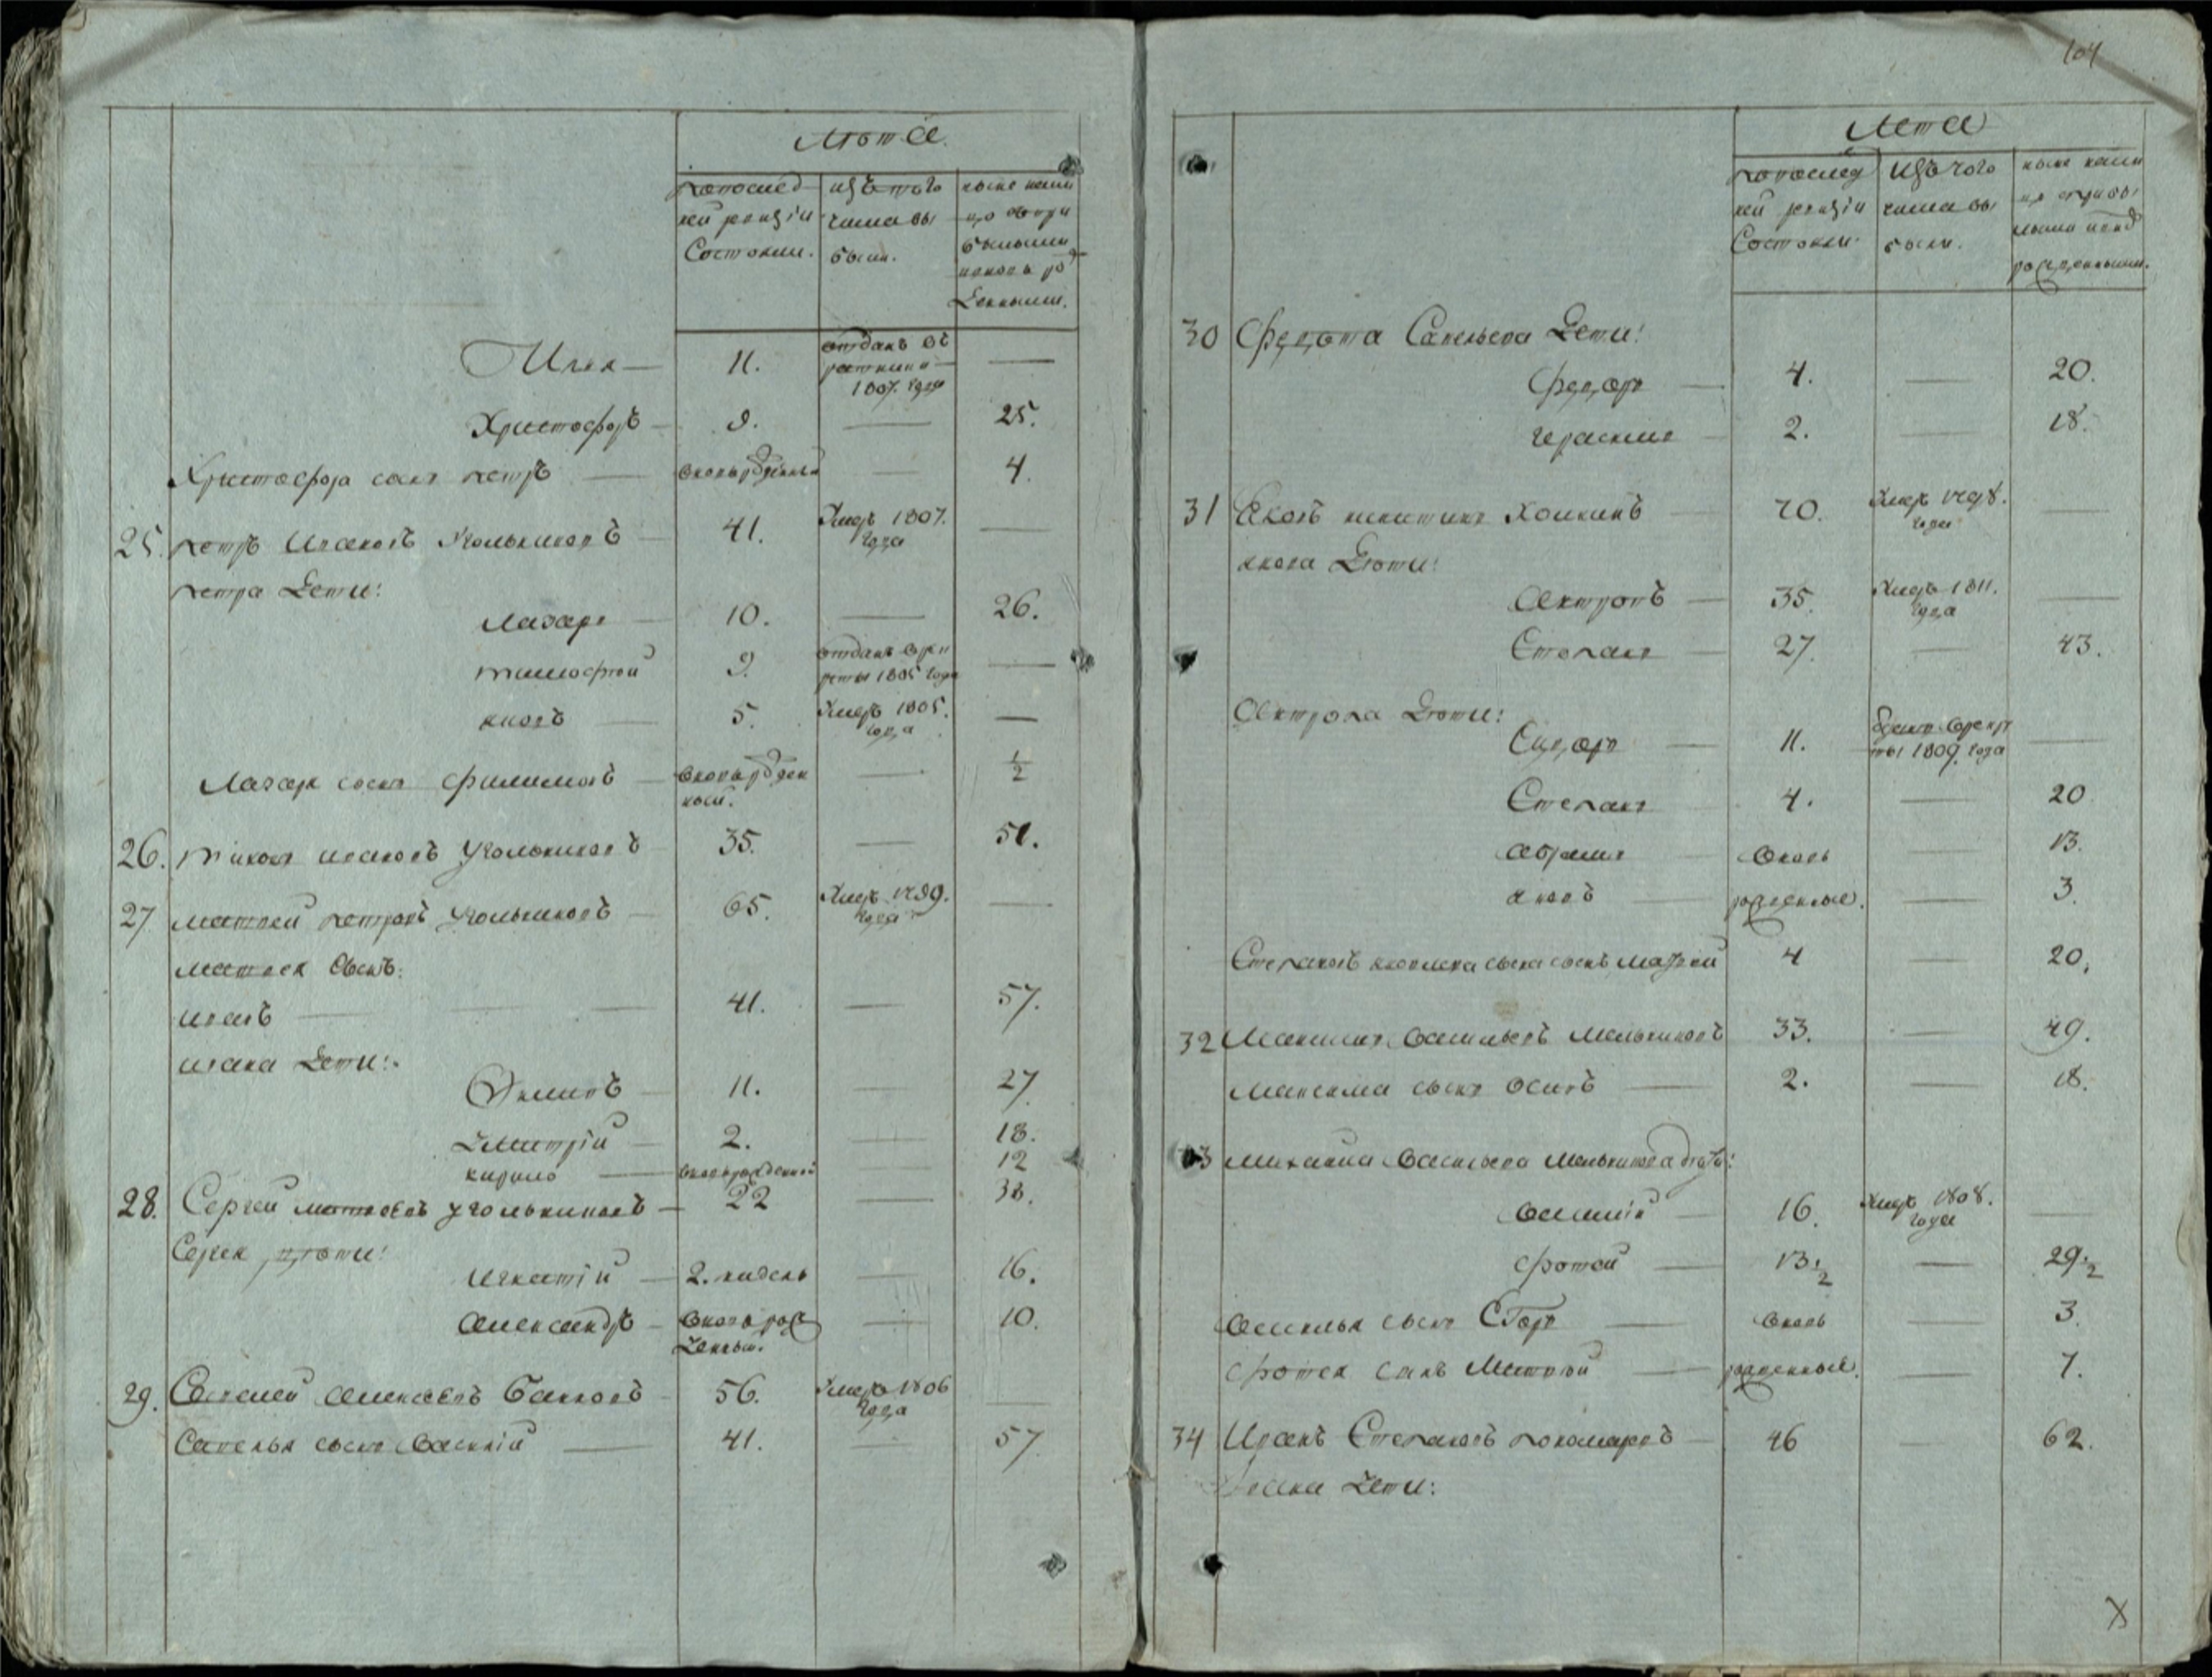 Лѣта
По послед
ней ревизіи
Состояли.
изъ того
числа вы
были.
Илья — 11. отданъ въ — 
1807. года
Христофоръ — 9. — 25.
Христофора сынъ петръ — вновь рожденный — 4.
25. петръ Ивановъ Угольниковъ — 41. Умеръ 1807. —
года
петра Дети:
Лазарь — 10. — 26.
тимофей — 9. отданъ в рек
руты 1805 года —
яковъ — 5. Умеръ 1805. —
года
Лазаря сынъ филимонъ — вновь рожден — 1/2
ной.
26. тихонъ ивановъ Угольниковъ — 35. — 51.
27 матвей петровъ Угольниковъ — 65. Умеръ 1799. —
года
матвея Сынъ:
иванъ — 41. — 57.
ивана Дети:
Екимъ — 11. — 27
Дмитрій — 2. — 18.
кирило — вновь рожденной 12
28. Сергей матвеевъ угольниковъ — 22 — 38.
Сергея дѣти:
Игнатій — 2. недель — 16.
Александръ — вновь рож — 10.
Денный.
29. Савелей Алексеевъ — 56. Умеръ 1806
года
Савелья сынъ Василій — 41. — 57
104
Лета
По послед
ней ревизіи
Состояли.
изъ того
числа вы
были.
30 Федота Савельева Дети:
Федоръ — 4. — 20.
Герасимъ — 2. — 18.
31 Яковъ никитинъ Хомкинъ — 70. Умеръ 1798. —
года
якова Дѣти:
Антропъ — 35. Умеръ 1811. —
года
Степанъ — 27. — 43.
Антропа Дѣти:
Сидоръ — 11. в рекру
ты 1809. года —
Степанъ — 4. — 20
Абрамъ — вновь — 13.
яковъ — рожденные. — 3.
Степановъ яковлева сына сынъ 4 — 20.
32 Максимъ Васильевъ Мельниковъ 33. — 49.
Максима сынъ Осипъ — 2. — 18.
33 Михаила Васильева Мельникова дѣти:
Василій — 16. Умеръ 1808. —
года
фотей — 13 1/2 — 29 1/2
Василья сынъ Егоръ — вновь — 3.
фотея сынъ Матвей — рожденные. — 7.
34 Иванъ Степановъ пономаревъ — 46 — 62.
Ивана Дети: